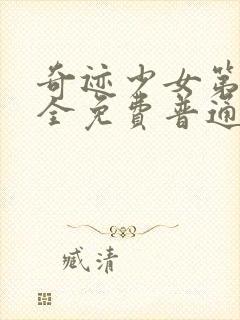 奇迹少女第
全免费普通
臧清